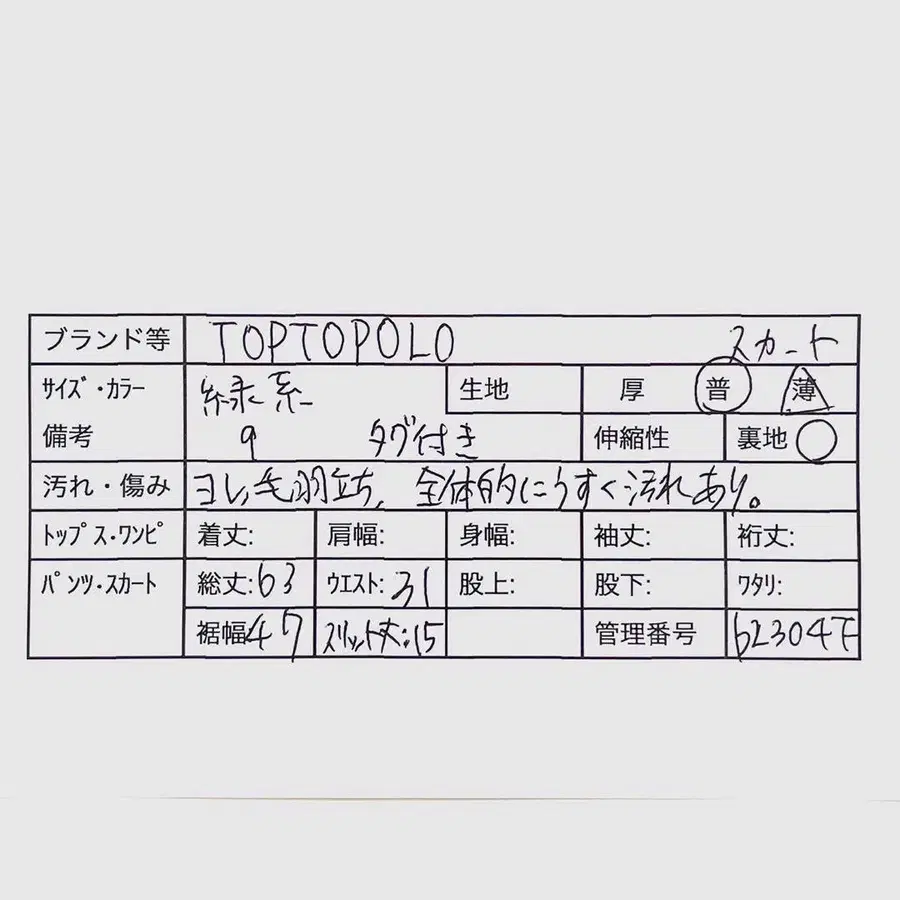 ブランド等 TOPTOPOLO スカート
サイズ・カラー 緑系 生地 厚 普 薄
備考 9 タグ付き 伸縮性 裏地 ○
汚れ・傷み ヨレ,毛羽立ち、全体的にうすく汚れあり。
トップス・ワンピ 着丈: 肩幅: 身幅: 袖丈: 裄丈:
パンツ・スカート 総丈:63 ウエスト:31 股上: 股下: ワタリ:
裾幅47 スリット丈:15 管理番号